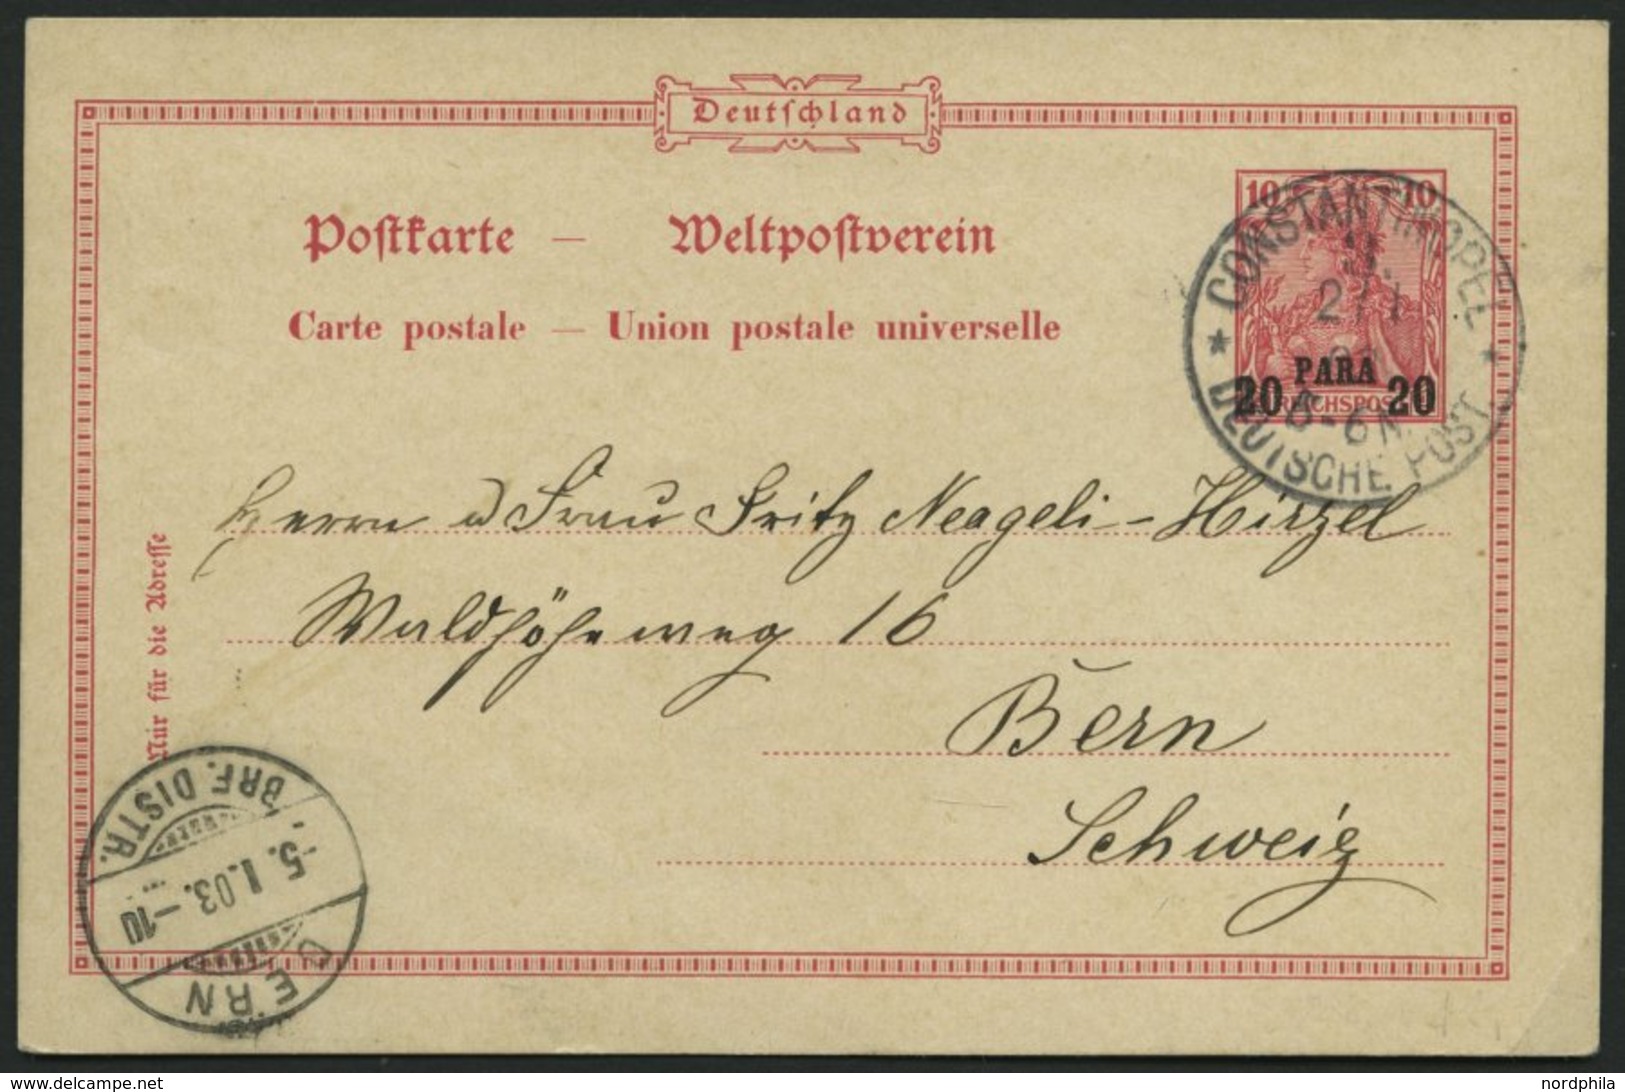 Deutschland
Postkarte — Weltpostverein
Carte postale — Union postale universelle
10 10
PARA
20 20
REICHSPOST
CONSTANTINOPEL
2/1
5-6 N.
DEUTSCHE POST.
Herrn u Frau Fritz Neageli-Hirzel
Waldhöheweg 16
Bern
Schweiz
Nur für die Adresse
BRF. DISTR.
-5. I. 03. -10
BERN
www.delcampe.net
nordphila